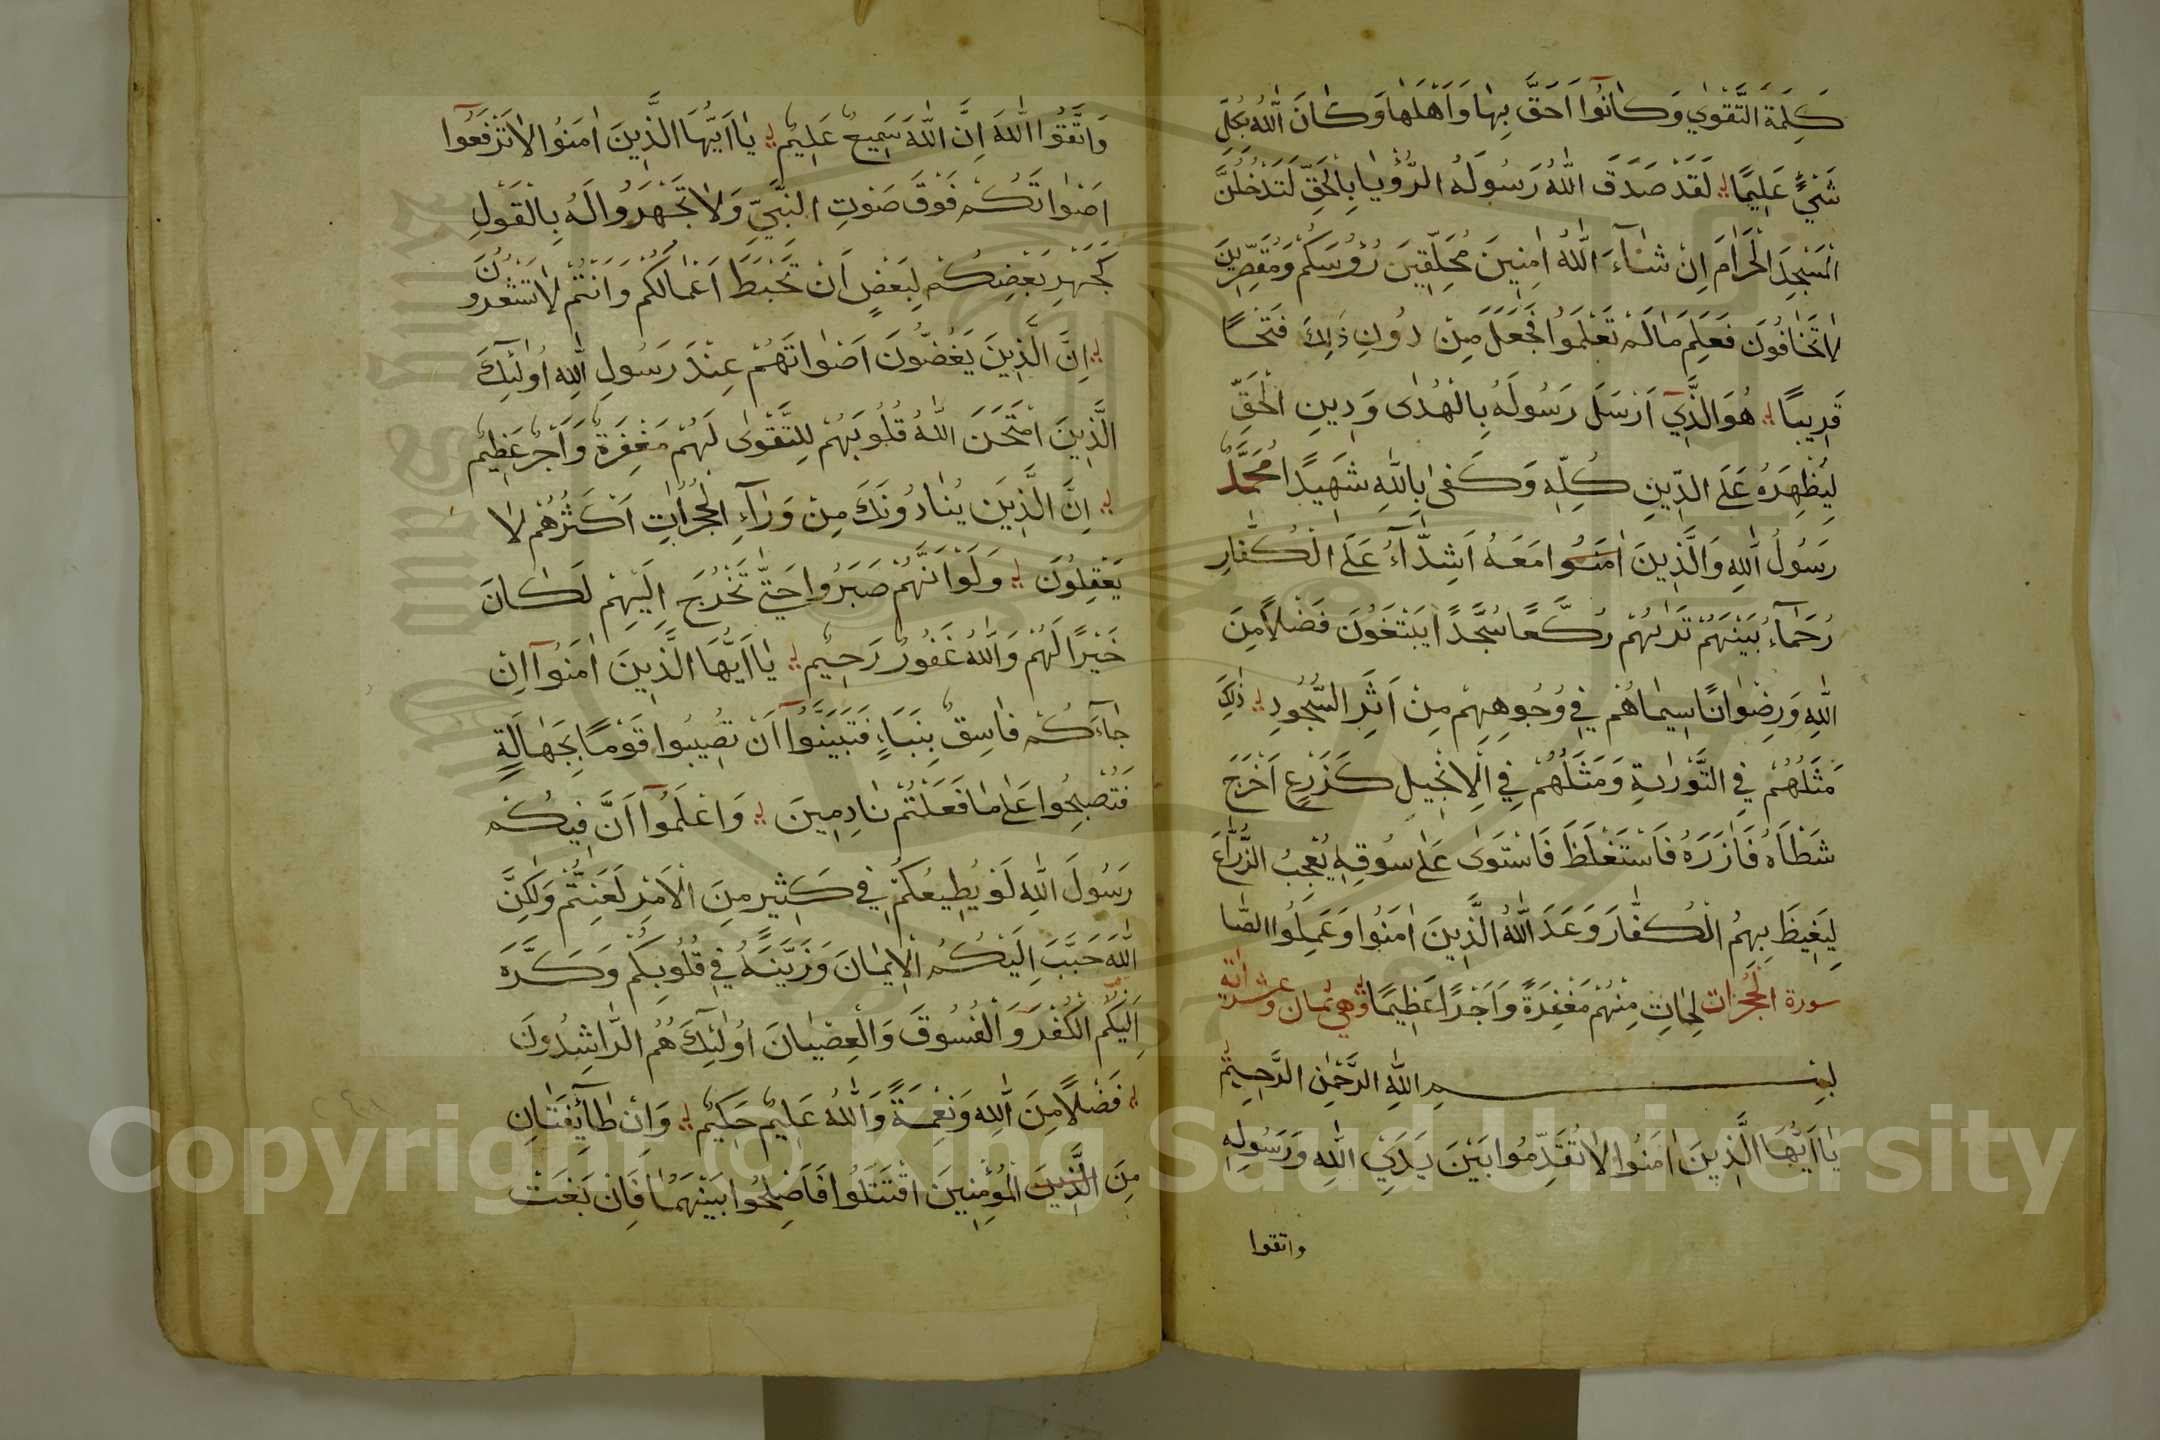 كَلِمَةَ التَّقْوٰي وَكَانُوٓا اَحَقَّ بِهَا وَاَهْلَهَا وَكَانَ اللّٰهُ بِكُلِّ
شَيْءٍ عَلِيمًا لَقَدْ صَدَقَ اللّٰهُ رَسُولَهُ الرُّؤْيَا بِالْحَقِّ لَتَدْخُلُنَّ
الْمَسْجِدَ الْحَرَامَ اِنْ شَآءَ اللّٰهُ اٰمِنِينَ مُحَلِّقِينَ رُؤُسَكُمْ وَمُقَصِّرِينَ
لَا تَخَافُونَ فَعَلِمَ مَا لَمْ تَعْلَمُوا فَجَعَلَ مِنْ دُونِ ذٰلِكَ فَتْحًا
قَرِيبًا هُوَ الَّذِيٓ اَرْسَلَ رَسُولَهُ بِالْهُدٰى وَدِينِ الْحَقِّ
لِيُظْهِرَهُ عَلَى الدِّينِ كُلِّهِ وَكَفٰى بِاللّٰهِ شَهِيدًا مُحَمَّدٌ
رَسُولُ اللّٰهِ وَالَّذِينَ اٰمَنُوا مَعَهُ اَشِدَّآءُ عَلَى الْكُفَّارِ
رُحَمَآءُ بَيْنَهُمْ تَرٰيهُمْ رُكَّعًا سُجَّدًا يَبْتَغُونَ فَضْلًا مِنَ
اللّٰهِ وَرِضْوَانًا سِيمَاهُمْ فِي وُجُوهِهِمْ مِنْ اَثَرِ السُّجُودِ ذٰلِكَ
مَثَلُهُمْ فِي التَّوْرٰيةِ وَمَثَلُهُمْ فِي الْاِنْجِيلِ كَزَرْعٍ اَخْرَجَ
شَطْاَهُ فَاٰزَرَهُ فَاسْتَغْلَظَ فَاسْتَوٰى عَلٰى سُوقِهِ يُعْجِبُ الزُّرَّاعَ
لِيَغِيظَ بِهِمُ الْكُفَّارَ وَعَدَ اللّٰهُ الَّذِينَ اٰمَنُوا وَعَمِلُوا الصَّا
سورة الحجرات لِحَاتِ مِنْهُمْ مَغْفِرَةً وَاَجْرًا عَظِيمًا وهي ثمان وعشر اٰية
بِسْمِ اللّٰهِ الرَّحْمٰنِ الرَّحِيمِ
يَا اَيُّهَا الَّذِينَ اٰمَنُوا لَا تُقَدِّمُوا بَيْنَ يَدَيِ اللّٰهِ وَرَسُولِهِ
واتقوا
وَاتَّقُوا اللّٰهَ اِنَّ اللّٰهَ سَمِيعٌ عَلِيمٌ يَا اَيُّهَا الَّذِينَ اٰمَنُوا لَا تَرْفَعُوٓا
اَصْوَاتَكُمْ فَوْقَ صَوْتِ النَّبِيِّ وَلَا تَجْهَرُوا لَهُ بِالْقَوْلِ
كَجَهْرِ بَعْضِكُمْ لِبَعْضٍ اَنْ تَحْبَطَ اَعْمَالُكُمْ وَاَنْتُمْ لَا تَشْعُرُونَ
اِنَّ الَّذِينَ يَغُضُّونَ اَصْوَاتَهُمْ عِنْدَ رَسُولِ اللّٰهِ اُولٰٓئِكَ
الَّذِينَ امْتَحَنَ اللّٰهُ قُلُوبَهُمْ لِلتَّقْوٰى لَهُمْ مَغْفِرَةٌ وَاَجْرٌ عَظِيمٌ
اِنَّ الَّذِينَ يُنَادُونَكَ مِنْ وَرَآءِ الْحُجُرَاتِ اَكْثَرُهُمْ لَا
يَعْقِلُونَ وَلَوْ اَنَّهُمْ صَبَرُوا حَتّٰى تَخْرُجَ اِلَيْهِمْ لَكَانَ
خَيْرًا لَهُمْ وَاللّٰهُ غَفُورٌ رَحِيمٌ يَا اَيُّهَا الَّذِينَ اٰمَنُوٓا اِنْ
جَآءَكُمْ فَاسِقٌ بِنَبَاٍ فَتَبَيَّنُوٓا اَنْ تُصِيبُوا قَوْمًا بِجَهَالَةٍ
فَتُصْبِحُوا عَلٰى مَا فَعَلْتُمْ نَادِمِينَ وَاعْلَمُوٓا اَنَّ فِيكُمْ
رَسُولَ اللّٰهِ لَوْ يُطِيعُكُمْ فِي كَثِيرٍ مِنَ الْاَمْرِ لَعَنِتُّمْ وَلٰكِنَّ
اللّٰهَ حَبَّبَ اِلَيْكُمُ الْاِيمَانَ وَزَيَّنَهُ فِي قُلُوبِكُمْ وَكَرَّهَ
اِلَيْكُمُ الْكُفْرَ وَالْفُسُوقَ وَالْعِصْيَانَ اُولٰٓئِكَ هُمُ الرَّاشِدُونَ
فَضْلًا مِنَ اللّٰهِ وَنِعْمَةً وَاللّٰهُ عَلِيمٌ حَكِيمٌ وَاِنْ طَآئِفَتَانِ
مِنَ الَّذِينَ الْمُؤْمِنِينَ اقْتَتَلُوا فَاَصْلِحُوا بَيْنَهُمَا فَاِنْ بَغَتْ
Copyright © King Saud University